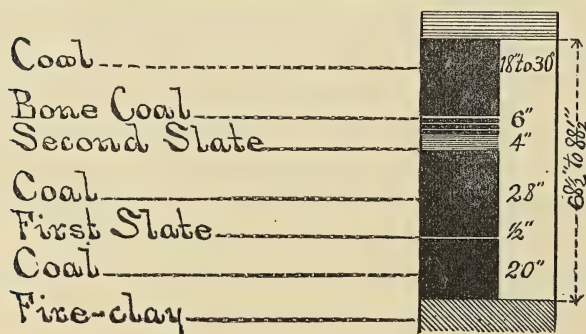 Coal 18" to 30"
Bone Coal 6"
Second Slate 4"
Coal 28"
First Slate ½"
Coal 20"
Fire-clay
68½" to 88½"